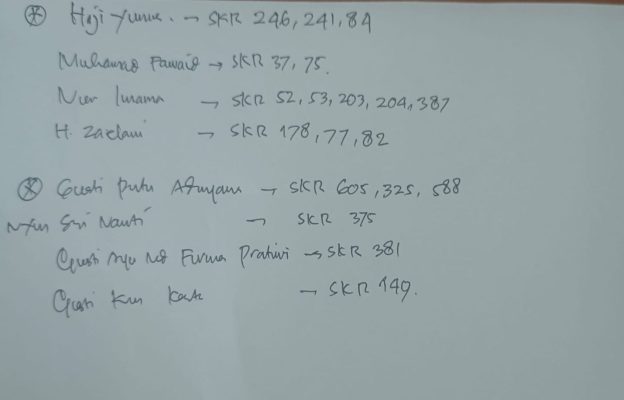 Haji Yunus. → SKR 246, 241, 84
Muhamad Fawaid → SKR 37, 75.
Nur Imama → SKR 52, 53, 203, 204, 387
H. Zaelani → SKR 178, 77, 82
Gusti Putu → SKR 605, 325, 588
Sri → SKR 375
Gusti Ayu Md Pratiwi → SKR 381
Gusti → SKR 149.